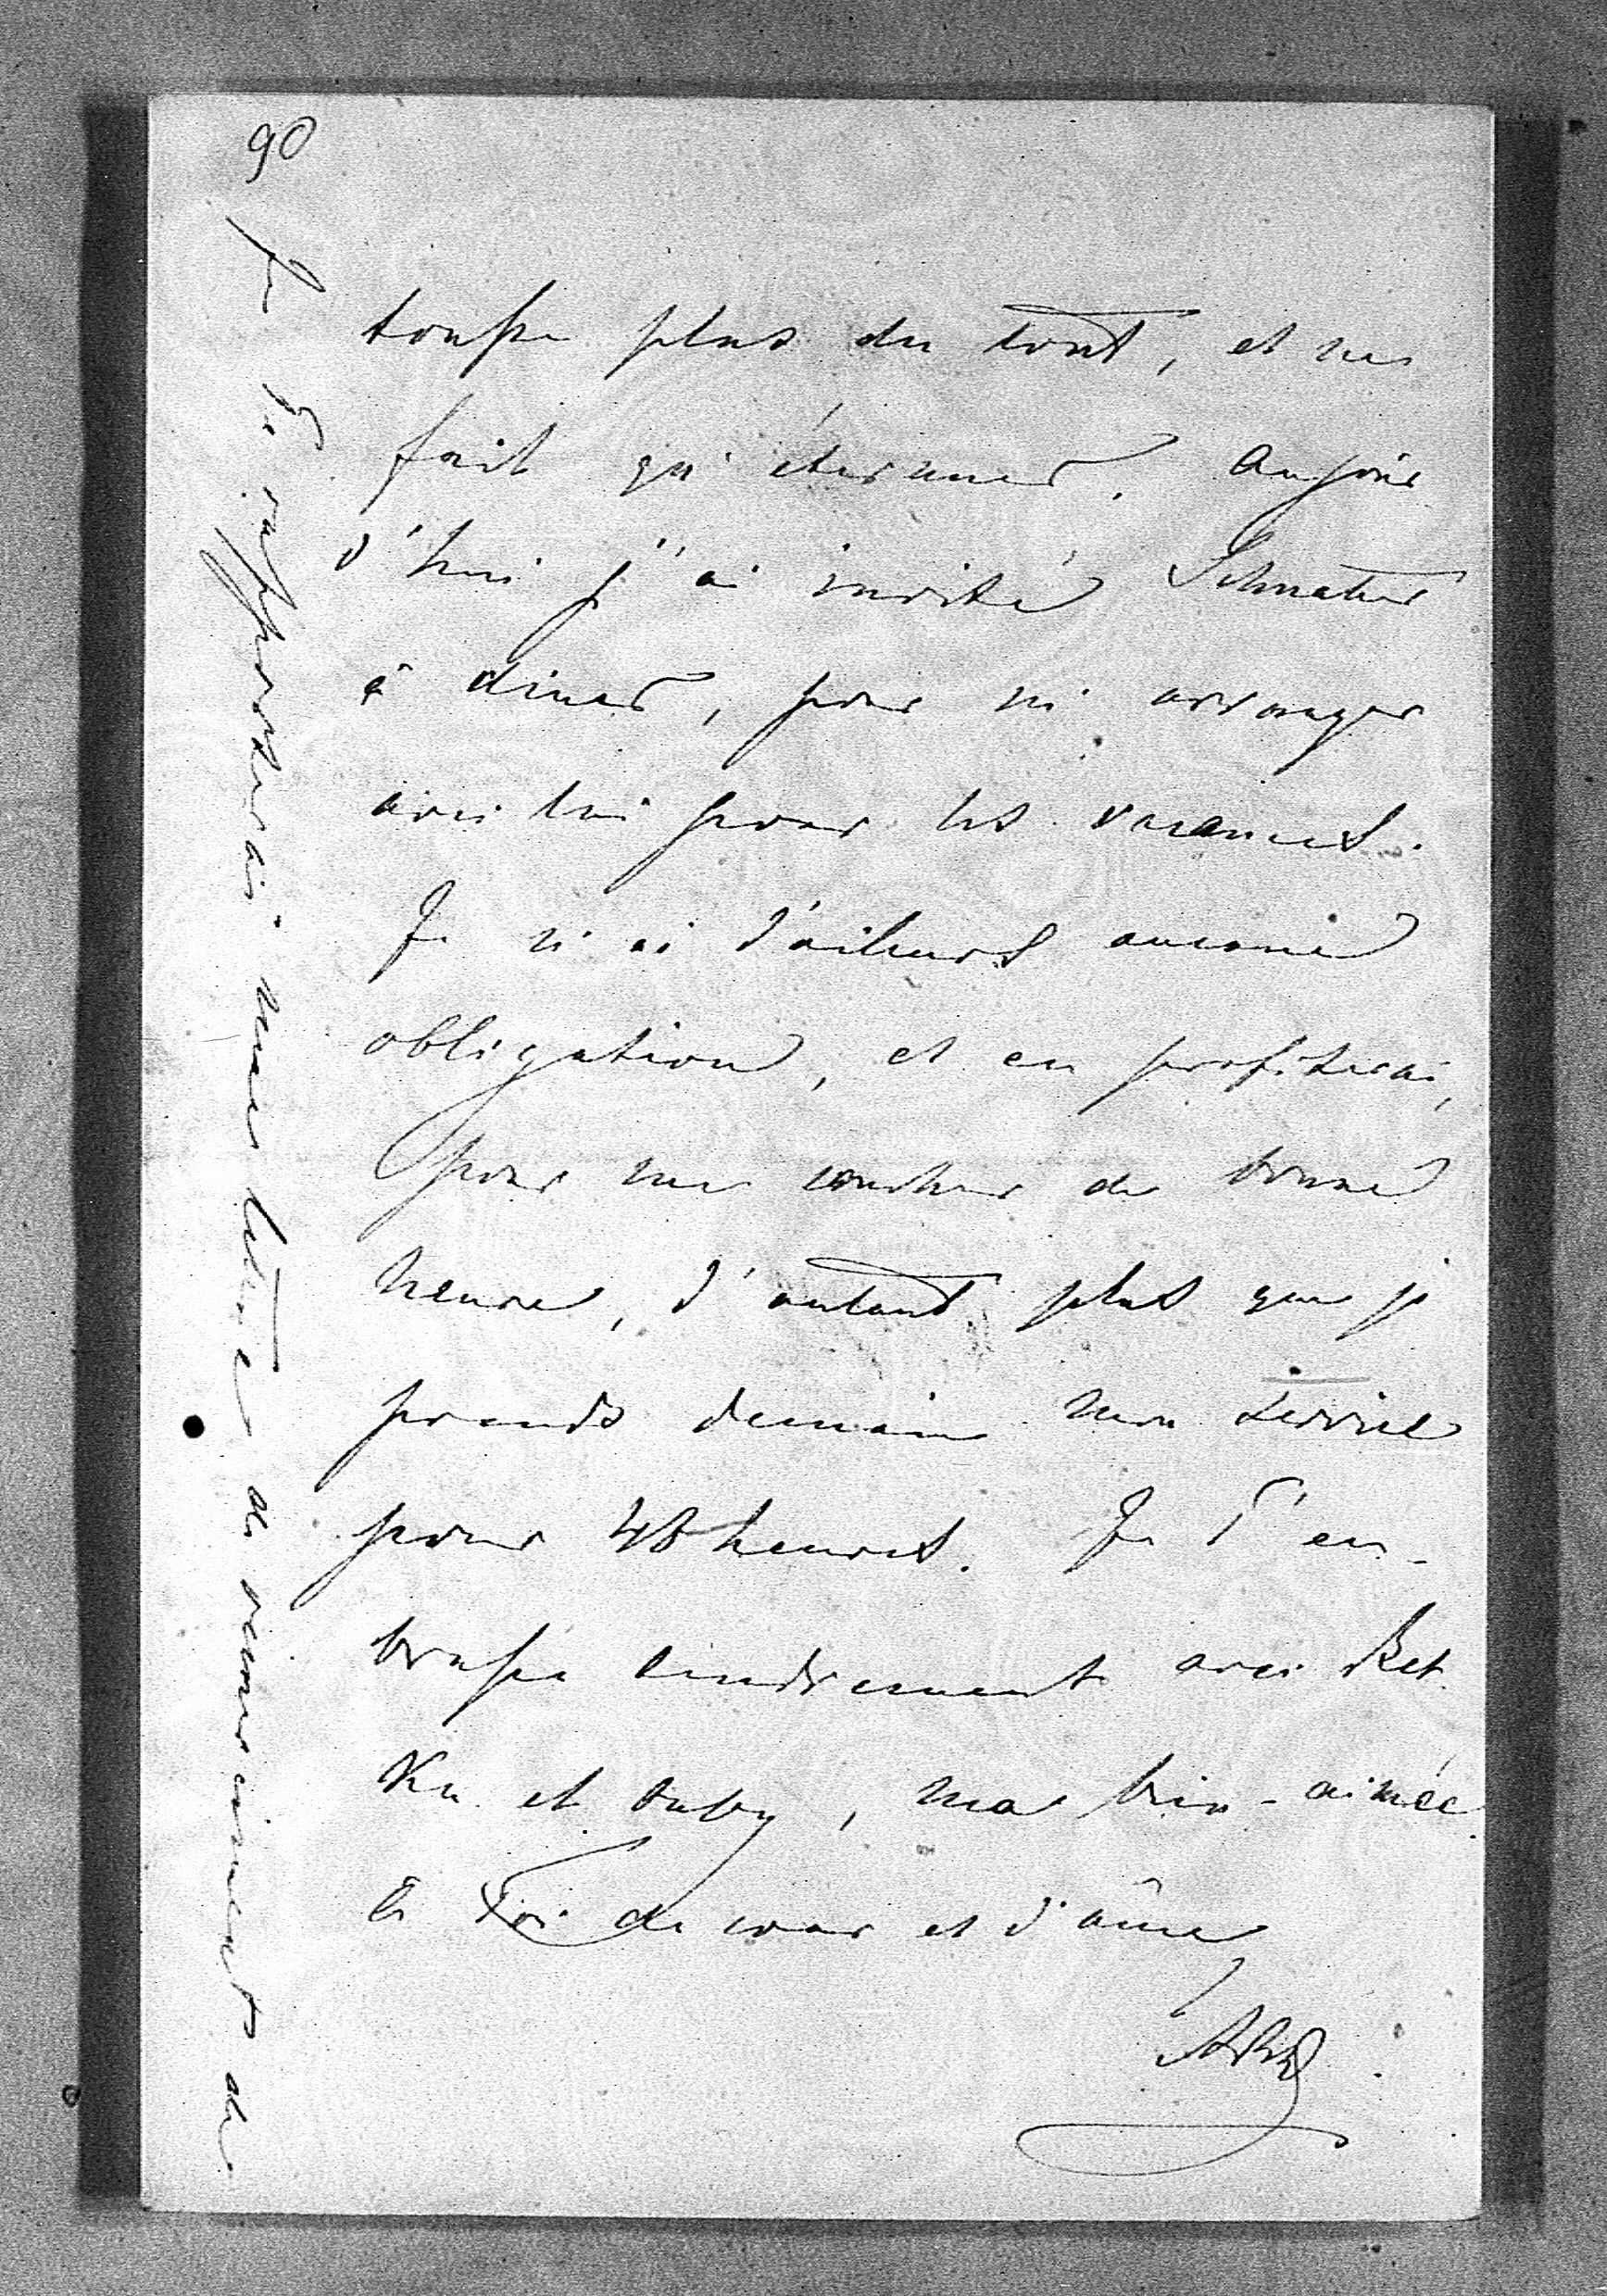 90
tousse plus du tout, et ne
fait qu'éternuer. Aujour
d'hui j'ai invité
à diner, pour m'arranger
avec lui pour les vacances.
Je n'ai d'ailleurs aucune
obligation, et en profiterai,
pour me coucher de bonne
heure, d'autant plus que je
prends demain mon service
pour 48 heures. Je T'em-
brasse tendrement avec Bet
Ku et baby, ma bien-aimée.
à Toi de cœur et d'âme
Je Te rapporterai une lettre de remerciement de